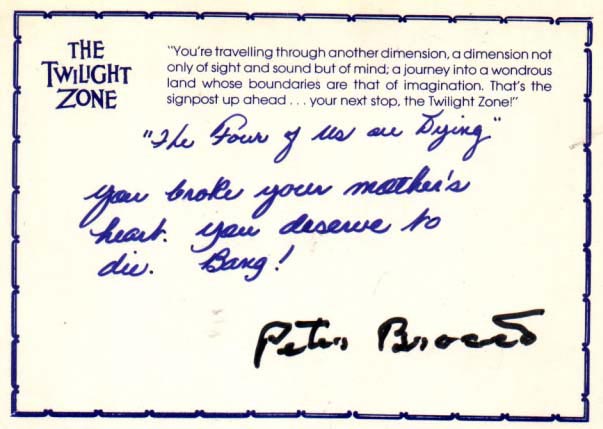 THE
TWILIGHT
ZONE
"You're travelling through another dimension, a dimension not
only of sight and sound but of mind; a journey into a wondrous
land whose boundaries are that of imagination. That's the
signpost up ahead . . . your next stop, the Twilight Zone!"
"The Four of Us are Dying"
you broke your mother's
heart. you deserve to
die. Bang!
Peter Brocco